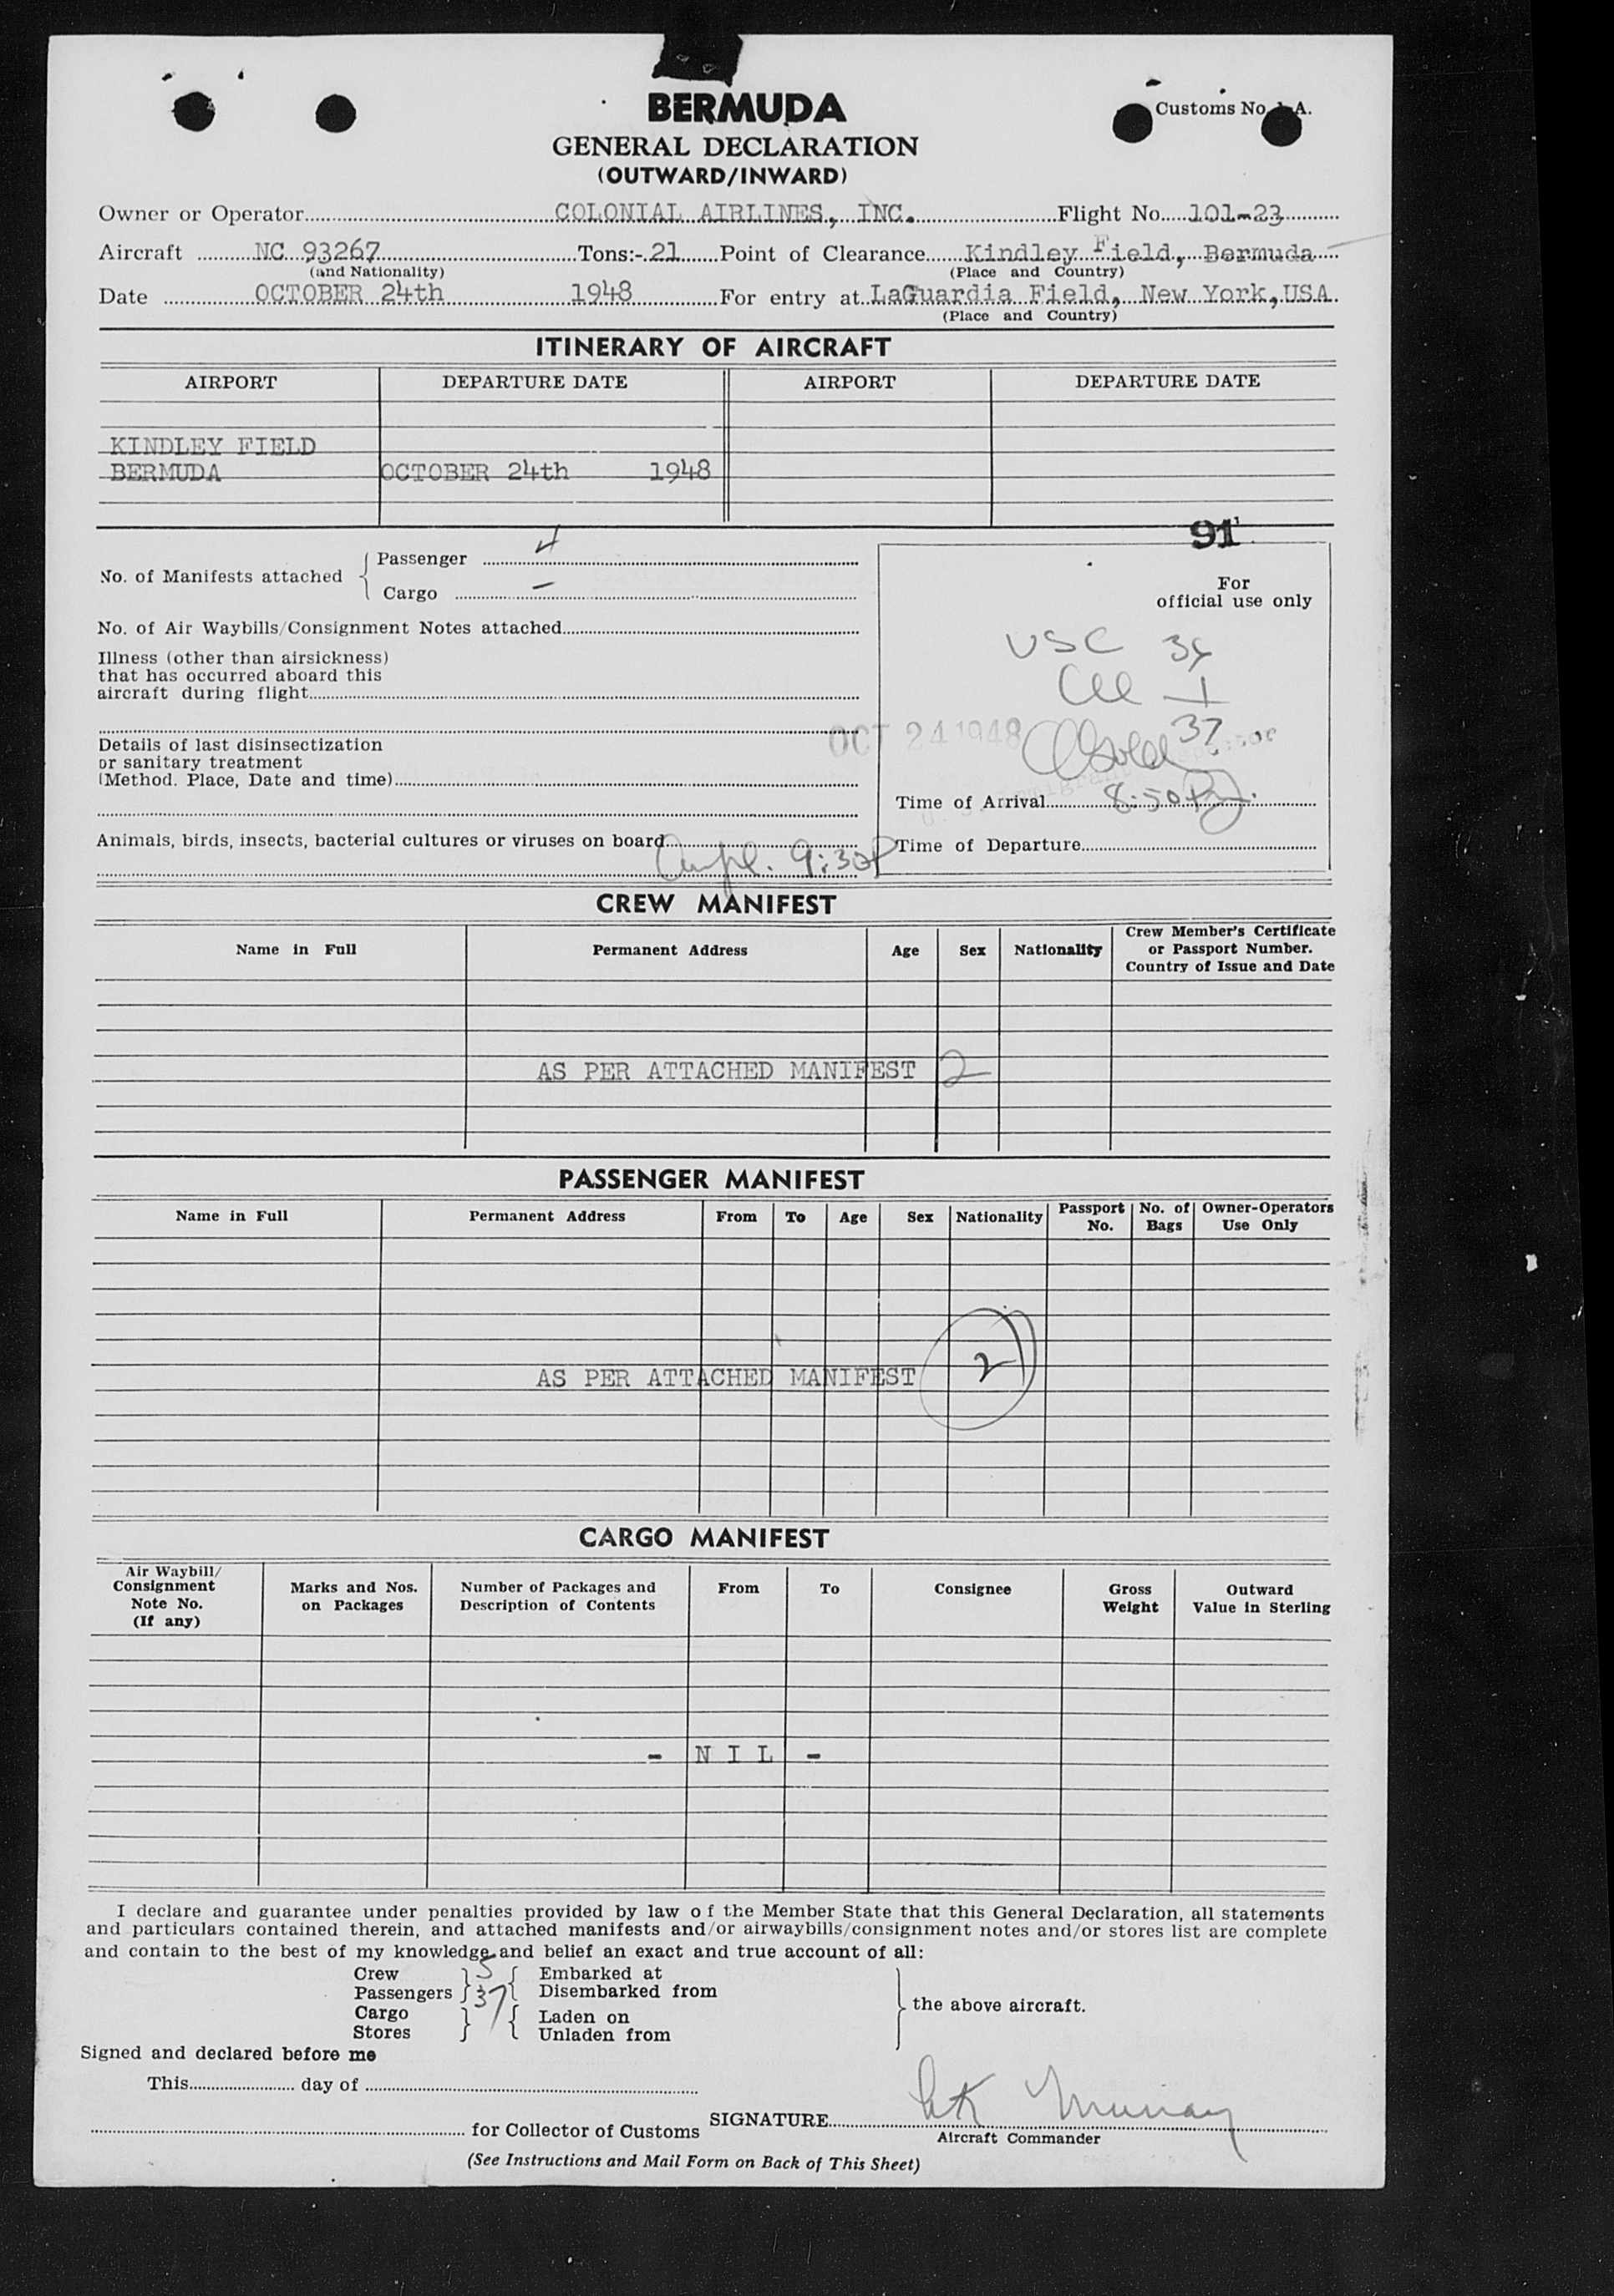 BERMUDA
Customs No. A.
GENERAL DECLARATION
(OUTWARD/INWARD)
Owner or Operator COLONIAL AIRLINES, INC. Flight No. 101-23
Aircraft NC 93267 Tons:- 21 Point of Clearance Kindley Field, Bermuda
(and Nationality) (Place and Country)
Date OCTOBER 24th 1948 For entry at LaGuardia Field, New York, USA
(Place and Country)
ITINERARY OF AIRCRAFT
AIRPORT DEPARTURE DATE AIRPORT DEPARTURE DATE
KINDLEY FIELD
BERMUDA OCTOBER 24th 1948
91
No. of Manifests attached { Passenger 4
Cargo -
For
official use only
No. of Air Waybills/Consignment Notes attached
USC
Illness (other than airsickness)
that has occurred aboard this
aircraft during flight
OCT 24 1948
37
Details of last disinsectization
or sanitary treatment
(Method. Place, Date and time)
Time of Arrival 8:50 P
Animals, birds, insects, bacterial cultures or viruses on board
9:30P
Time of Departure
CREW MANIFEST
Name in Full Permanent Address Age Sex Nationality Crew Member's Certificate
or Passport Number.
Country of Issue and Date
AS PER ATTACHED MANIFEST 2
PASSENGER MANIFEST
Name in Full Permanent Address From To Age Sex Nationality Passport No. No. of Bags Owner-Operators Use Only
2
AS PER ATTACHED MANIFEST
CARGO MANIFEST
Air Waybill/
Consignment
Note No.
(If any) Marks and Nos. on Packages Number of Packages and Description of Contents From To Consignee Gross Weight Outward Value in Sterling
- N I L -
I declare and guarantee under penalties provided by law of the Member State that this General Declaration, all statements
and particulars contained therein, and attached manifests and/or airwaybills/consignment notes and/or stores list are complete
and contain to the best of my knowledge and belief an exact and true account of all:
Crew 5 Embarked at
Passengers 37 Disembarked from
the above aircraft.
Cargo Laden on
Stores Unladen from
Signed and declared before me
This day of
SIGNATURE Murray
for Collector of Customs
Aircraft Commander
(See Instructions and Mail Form on Back of This Sheet)